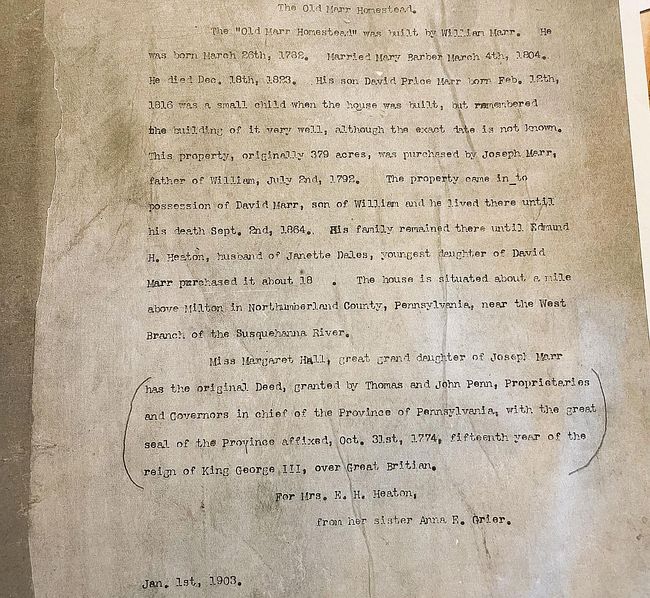 The Old Marr Homestead.
The "Old Marr Homestead" was built by William Marr. He
was born March 26th, 1782. Married Mary Barber March 4th, 1804.
He died Dec. 18th, 1823. His son David Price Marr born Feb. 12th,
1816 was a small child when the house was built, but remembered
the building of it very well, although the exact date is not known.
This property, originally 379 acres, was purchased by Joseph Marr,
father of William, July 2nd, 1792. The property came in_to
possession of David Marr, son of William and he lived there until
his death Sept. 2nd, 1864. His family remained there until Edmund
H. Heaton, husband of Janette Dales, youngest daughter of David
Marr purchased it about 18 . The house is situated about a mile
above Milton in Northumberland County, Pennsylvania, near the West
Branch of the Susquehanna River.
Miss Margaret Hall, great grand daughter of Joseph Marr
has the original Deed, granted by Thomas and John Penn, Proprietaries
and Governors in chief of the Province of Pennsylvania, with the great
seal of the Province affixed, Oct. 31st, 1774, fifteenth year of the
reign of King George III, over Great Britian.
For Mrs. E. H. Heaton,
from her sister Anna E. Grier.
Jan. 1st, 1903.